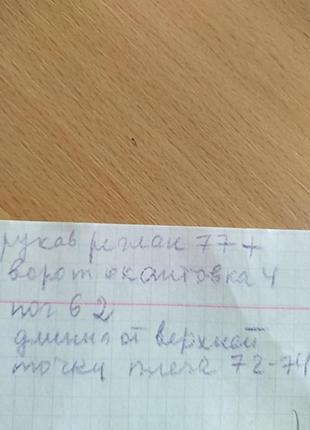 рукав реглан 77+
ворот окантовка 4
пог 62
длинна от верхней
точки плеча 72-74